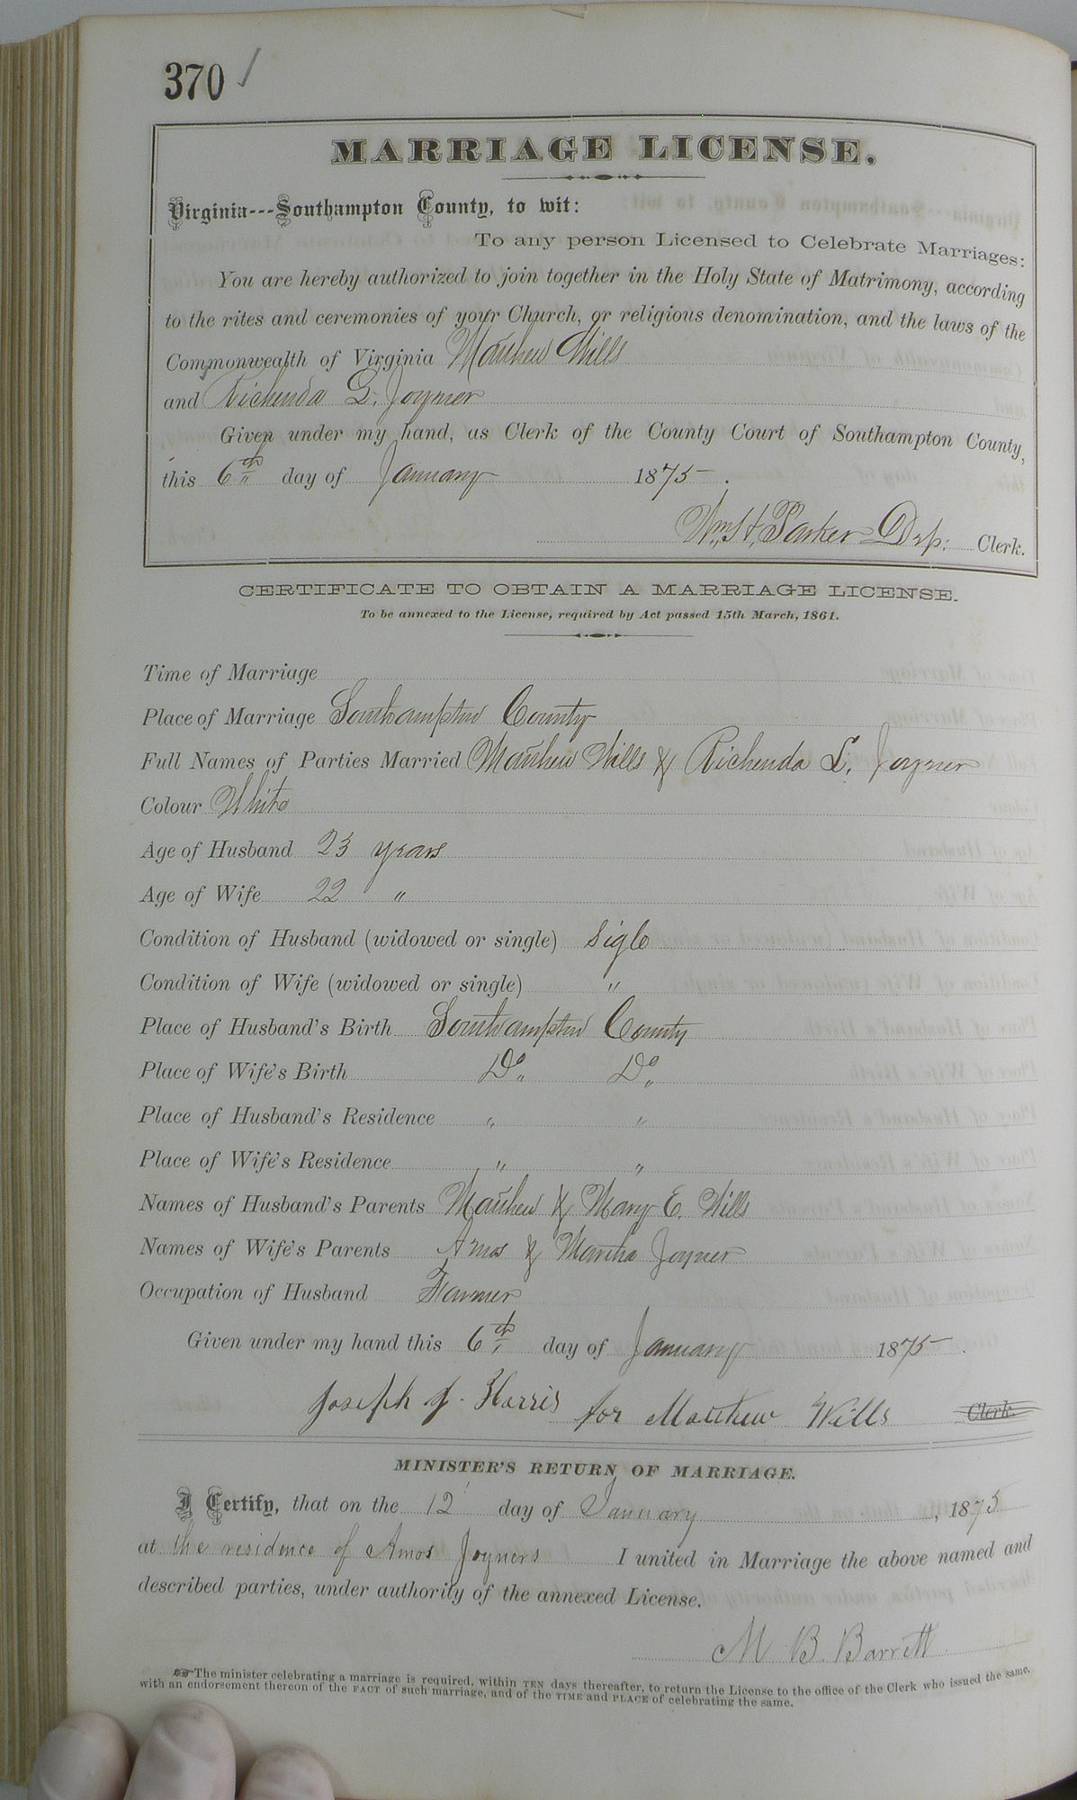 370 /
MARRIAGE LICENSE.
Virginia---Southampton County, to wit:
To any person Licensed to Celebrate Marriages:
You are hereby authorized to join together in the Holy State of Matrimony, according
to the rites and ceremonies of your Church, or religious denomination, and the laws of the
Commonwealth of Virginia Matthew Wills
and Richenda L. Joyner
Given under my hand, as Clerk of the County Court of Southampton County,
this 6th day of January 1875.
Wm. H. Parker Dep: Clerk.
CERTIFICATE TO OBTAIN A MARRIAGE LICENSE.
To be annexed to the License, required by Act passed 15th March, 1861.
Time of Marriage
Place of Marriage Southampton County
Full Names of Parties Married Matthew Wills & Richenda L. Joyner
Colour White
Age of Husband 23 years
Age of Wife 22 "
Condition of Husband (widowed or single) Sigle
Condition of Wife (widowed or single) "
Place of Husband's Birth Southampton County
Place of Wife's Birth Do Do
Place of Husband's Residence " "
Place of Wife's Residence " "
Names of Husband's Parents Matthew & Mary E. Wills
Names of Wife's Parents Amos & Martha Joyner
Occupation of Husband Farmer
Given under my hand this 6th day of January 1875.
Joseph J. Harris for Matthew Wills Clerk.
MINISTER'S RETURN OF MARRIAGE.
I Certify, that on the 12 day of January, 1875
at the residence of Amos Joyners I united in Marriage the above named and
described parties, under authority of the annexed License.
M B. Barrett
☞ The minister celebrating a marriage is required, within TEN days thereafter, to return the License to the office of the Clerk who issued the same,
with an endorsement thereon of the FACT of such marriage, and of the TIME and PLACE of celebrating the same.